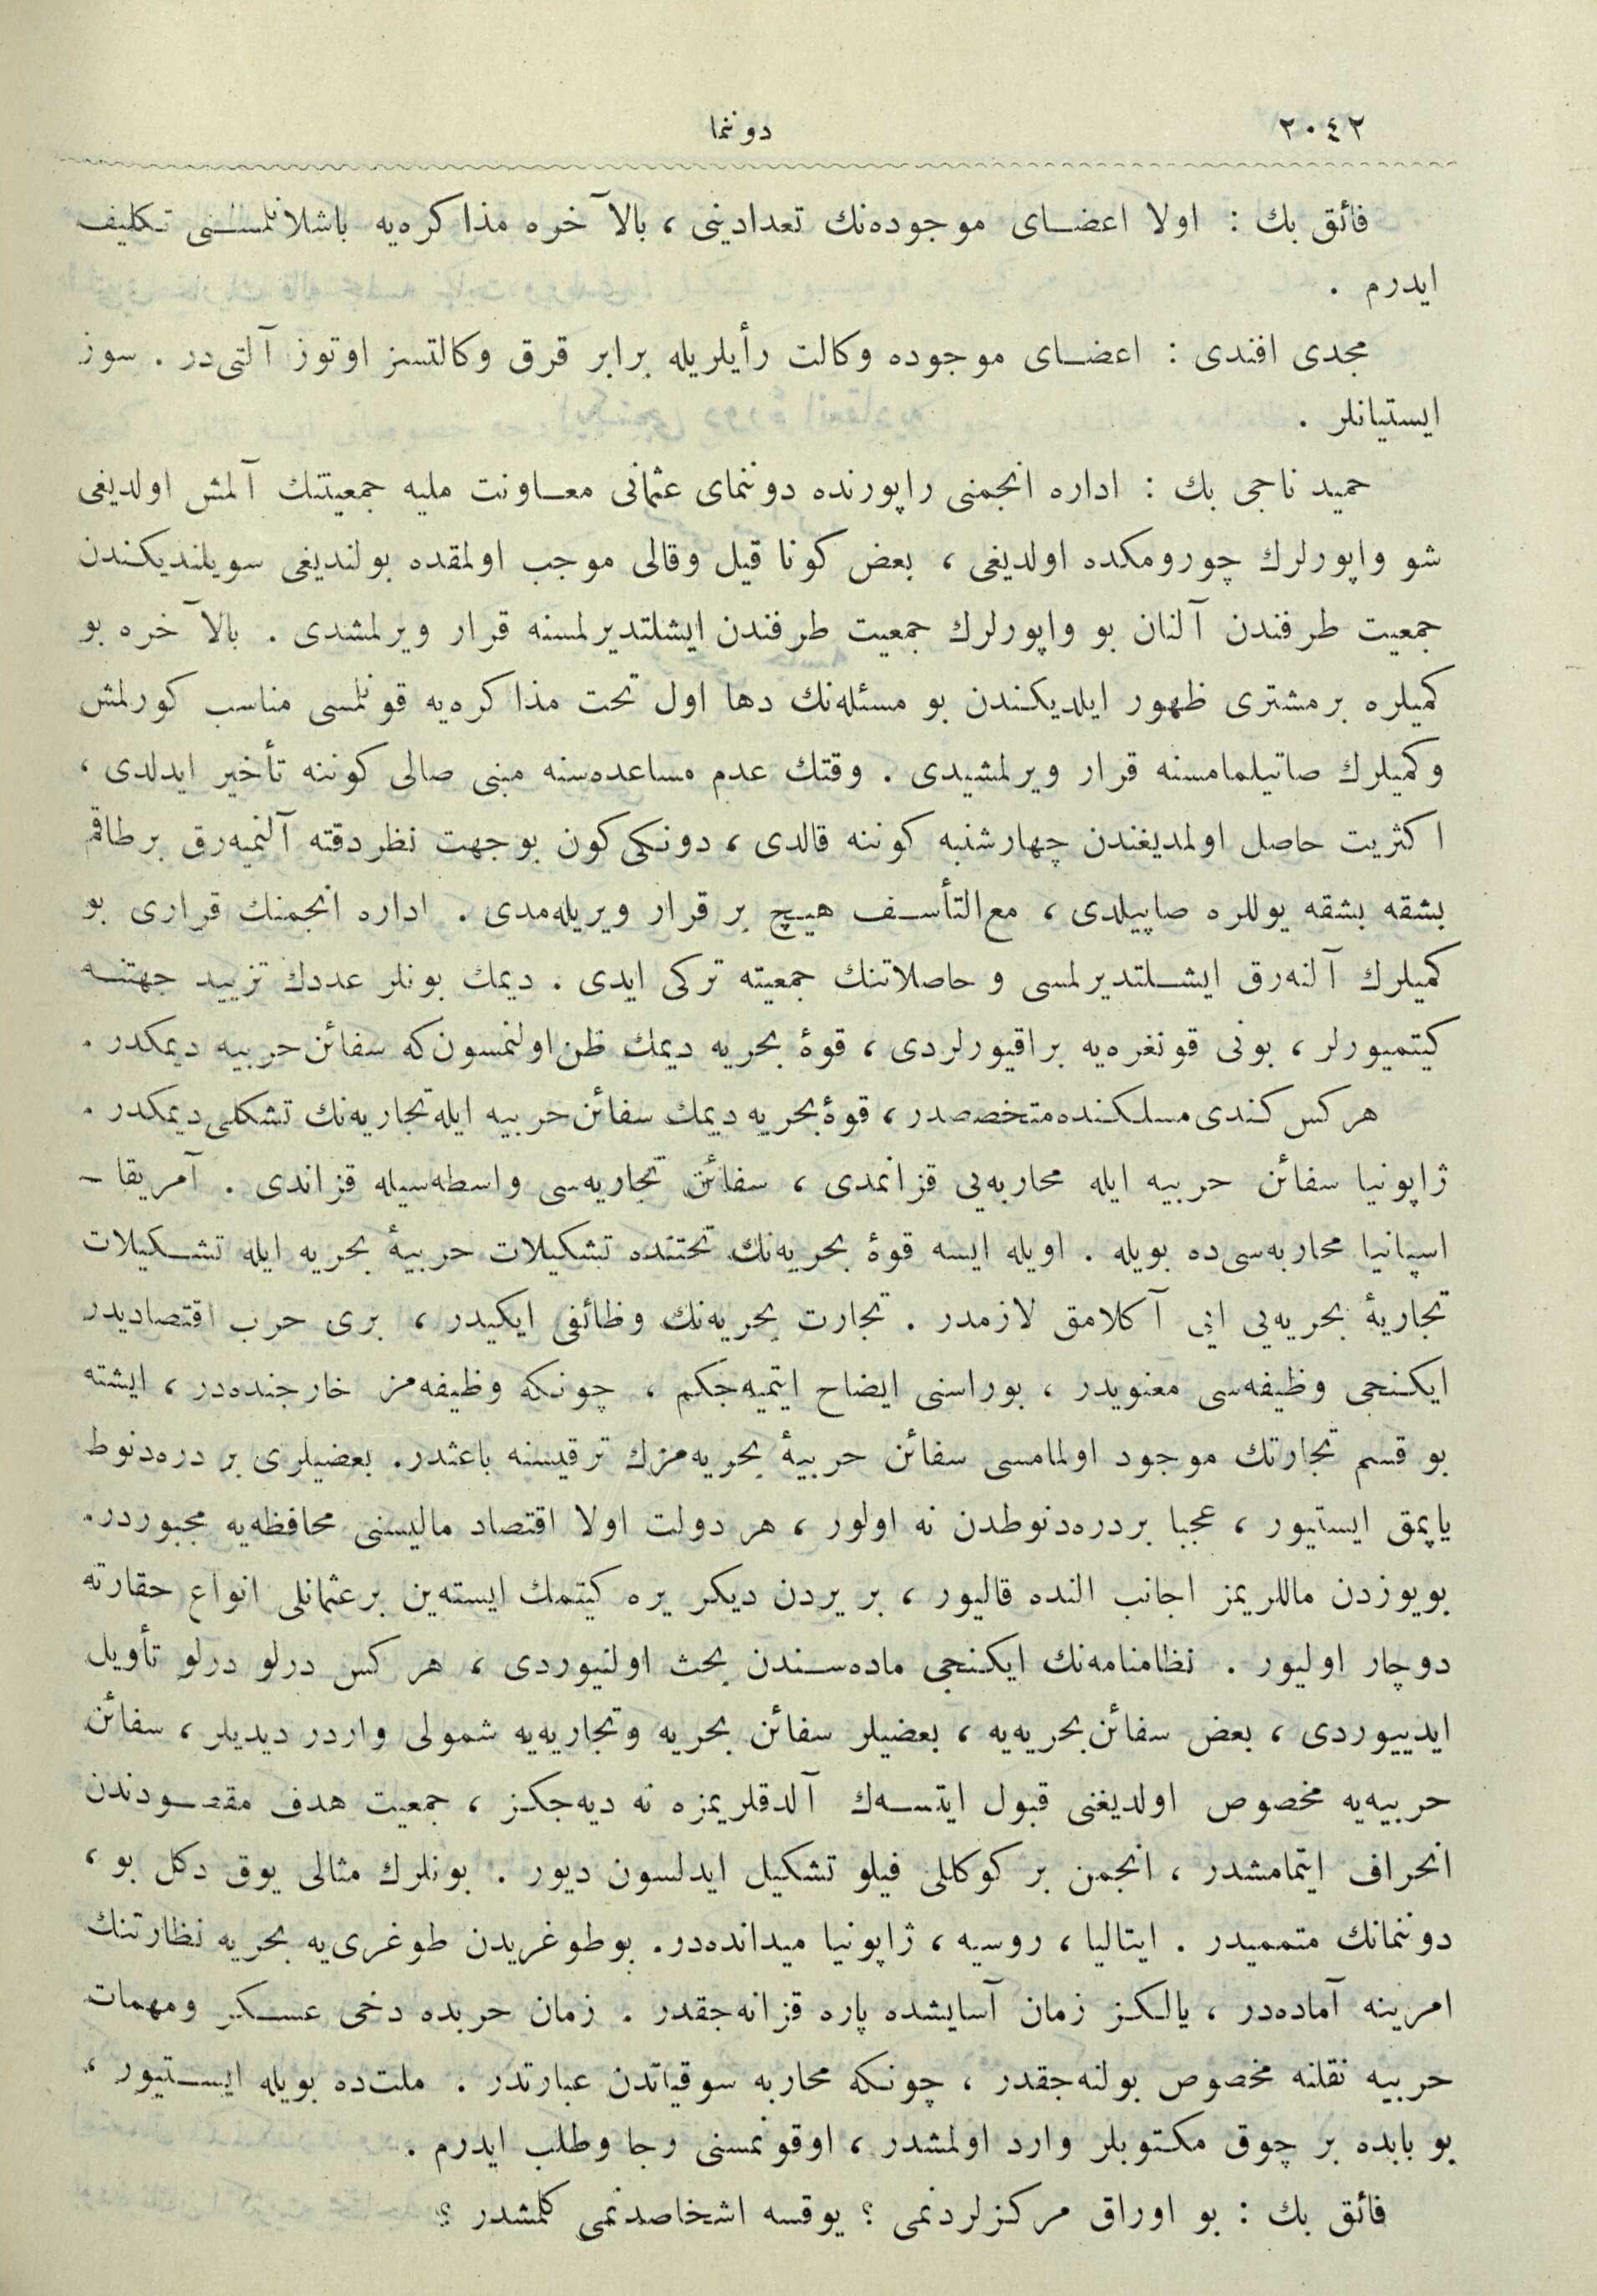 ٢٠٤٢
دوننما
فائق بك : اولا اعضای موجوده‌نك تعدادینی ، بالآخره مذاكره‌یه باشلانلمسنی تكلیف
ایدرم .
مجدی افندی : اعضای موجوده وكالت رأیلریله برابر قرق وكالتسز اوتوز آلتی‌در . سوز
ایستیانلر .
حمید ناجی بك : اداره انجمنی راپورنده دوننمای عثمانی معاونت ملیه جمعیتنك آلمش اولدیغی
شو واپورلرك چورومكده اولدیغی ، بعض كونا قیل وقالی موجب اولمقده بولندیغی سویلندیكندن
جمعیت طرفندن آلنان بو واپورلرك جمعیت طرفندن ایشلتدیرلمسنه قرار ویرلمشدی . بالآخره بو
كمیلره برمشتری ظهور ایلدیكندن بو مسئله‌نك دها اول تحت مذاكره‌یه قونلمسی مناسب كورلمش
وكمیلرك صاتیلمامسنه قرار ویرلمشیدی . وقتك عدم مساعده‌سنه مبنی صالی كوننه تأخیر ایدلدی ،
اكثریت حاصل اولمدیغندن چهارشنبه كوننه قالدی ، دونكی كون بوجهت نظردقته آلنمیه‌رق برطاقم
بشقه بشقه یوللره صاپیلدی ، مع‌التأسف هیچ بر قرار ویریله‌مدی . اداره انجمنك قراری بو
كمیلرك آلنه‌رق ایشلتدیرلمسی و حاصلاتنك جمعیته تركی ایدی . دیمك بونلر عددك تزیید جهتنه
كیتمیورلر ، بونی قونغره‌یه براقیورلردی ، قوۀ بحریه دیمك ظن‌اولنمسون‌كه سفائن‌حربیه دیمكدر .
هركس كندی مسلكنده متخصصدر ، قوۀ‌بحریه دیمك سفائن‌حربیه ایله‌تجاریه‌نك تشكلی‌دیمكدر .
ژاپونیا سفائن حربیه ایله محاربه‌یی قزانمدی ، سفائن تجاریه‌سی واسطه‌سیله قزاندی . آمریقا -
اسپانیا محاربه‌سی‌ده بویله . اویله ایسه قوۀ بحریه‌نك تحتنده تشكیلات حربیۀ بحریه ایله تشكیلات
تجاریۀ بحریه‌یی ایی آكلامق لازمدر . تجارت بحریه‌نك وظائفی ایكیدر ، بری حرب اقتصادیدر
ایكنجی وظیفه‌سی معنویدر ، بوراسنی ایضاح ایتمیه‌جكم ، چونكه وظیفه‌مز خارجنده‌در ، ایشته
بو قسم تجارتك موجود اولمامسی سفائن حربیۀ بحریه‌مزك ترقیسنه باعثدر. بعضیلری بر دره‌دنوط
یاپمق ایستیور ، عجبا بردره‌دنوطدن نه اولور ، هر دولت اولا اقتصاد مالیسنی محافظه‌یه مجبوردر.
بویوزدن ماللریمز اجانب النده قالیور ، بر یردن دیكر یره كیتمك ایسته‌ین برعثمانلی انواع حقارته
دوچار اولیور . نظامنامه‌نك ایكنجی ماده‌سندن بحث اولنیوردی ، هركس درلو درلو تأویل
ایدییوردی ، بعض سفائن‌بحریه‌یه ، بعضیلر سفائن بحریه وتجاریه‌یه شمولی واردر دیدیلر ، سفائن
حربیه‌یه مخصوص اولدیغنی قبول ایتسه‌ك آلدقلریمزه نه دیه‌جكز ، جمعیت هدف مقصودندن
انحراف ایتمامشدر ، انجمن بر كوكللی فیلو تشكیل ایدلسون دیور . بونلرك مثالی یوق دكل بو ،
دوننمانك متممیدر . ایتالیا ، روسیه ، ژاپونیا میدانده‌در. بوطوغریدن طوغری‌یه بحریه نظارتنك
امرینه آماده‌در ، یالكز زمان آسایشده پاره قزانه‌جقدر . زمان حربده دخی عسكر ومهمات
حربیه نقلنه مخصوص بولنه‌جقدر ، چونكه محاربه سوقیاتدن عبارتدر . ملت‌ده بویله ایستیور ،
بو بابده بر چوق مكتوبلر وارد اولمشدر ، اوقونمسنی رجا وطلب ایدرم .
فائق بك : بو اوراق مركزلردنمی ؟ یوقسه اشخاصدنمی كلمشدر ؟